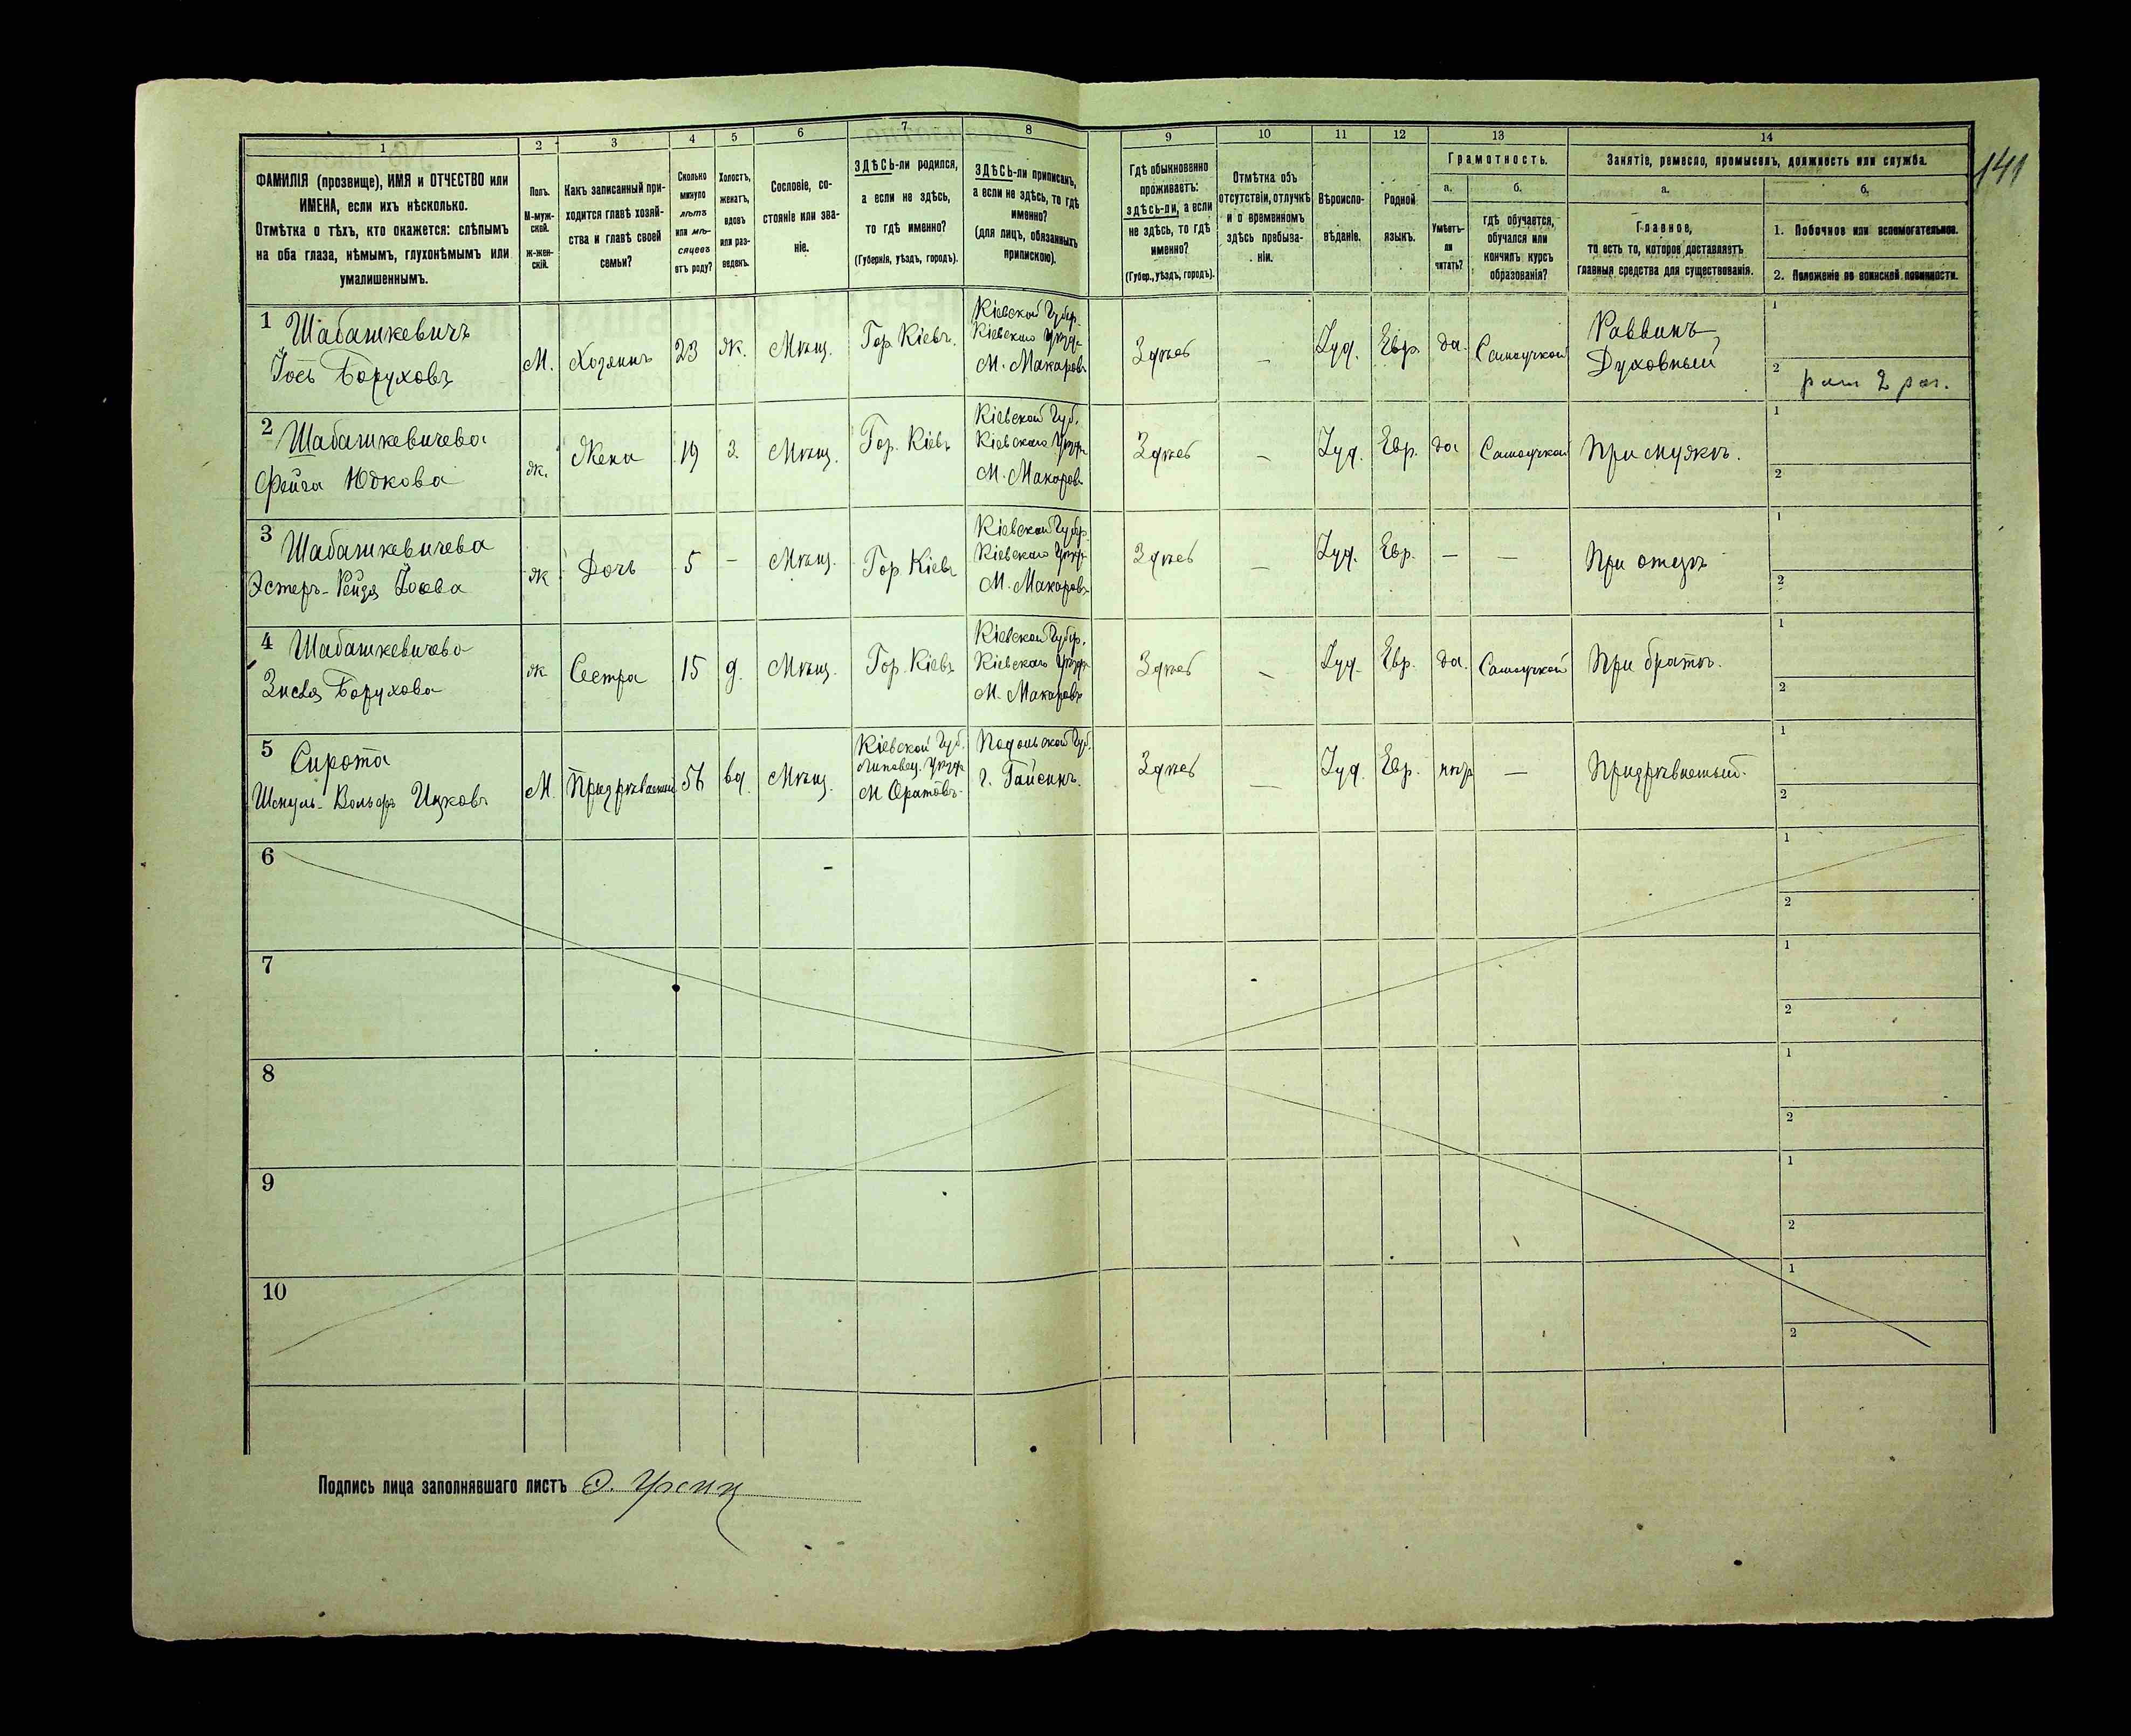 141
1
2
3
4
5
6
7
8
9
10
11
12
13
14
ФАМИЛІЯ (прозвище), ИМЯ и ОТЧЕСТВО или
ИМЕНА, если ихъ нѣсколько.
Отмѣтка о тѣхъ, кто окажется: слѣпымъ
на оба глаза, нѣмымъ, глухонѣмымъ или
умалишеннымъ.
Полъ.
М-муж-
ской.
ж-жен-
скій.
Какъ записанный при-
ходится главѣ хозяй-
ства и главѣ своей
семьи?
Сколько
минуло
лѣтъ
или мѣ-
сяцевъ
отъ роду?
Холостъ,
женатъ,
вдовъ
или раз-
веденъ.
Сословіе, со-
стояніе или зва-
ніе.
ЗДѢСЬ-ли родился,
а если не здѣсь,
то гдѣ именно?
(Губернія, уѣздъ, городъ).
ЗДѢСЬ-ли приписанъ,
а если не здѣсь, то гдѣ
именно?
(для лицъ, обязанныхъ
припискою).
Гдѣ обыкновенно
проживаетъ:
здѣсь-ли, а если
не здѣсь, то гдѣ
именно?
(Губер., уѣздъ, городъ).
Отмѣтка объ
отсутствіи, отлучкѣ
и о временномъ
здѣсь пребыва-
ніи.
Вѣроиспо-
вѣданіе.
Родной
языкъ.
Грамотность.
а.
Умѣетъ-
ли
читать?
б.
гдѣ обучается,
обучался или
кончилъ курсъ
образованія?
Занятіе, ремесло, промыселъ, должность или служба.
а.
Главное,
то есть то, которое доставляетъ
главныя средства для существованія.
б.
1. Побочное или вспомогательное.
2. Положеніе по воинской повинности.
1 Шабашкевичъ
Іосъ Боруховъ
М.
Хозяинъ
23
ж.
Мѣщ.
Гор. Кіевъ.
Кіевской Губер.
Кіевскаго Уѣзд.
М. Макаровъ
Здѣсь
—
Іуд.
Евр.
да.
Самоучкой
Раввинъ,
Духовный
1
2 рат 2 раз.
2 Шабашкевичева
Фейга Юдкова
ж.
Жена
19
з.
Мѣщ.
Гор. Кіевъ
Кіевской Губ.
Кіевскаго Уѣзд.
М. Макаровъ
Здѣсь
—
Іуд.
Евр.
да
Самоучкой
При мужѣ.
1
2
3 Шабашкевичева
Эстеръ-Рейзя Іосева
ж
Дочь
5
—
Мѣщ.
Гор. Кіевъ
Кіевской Губер.
Кіевскаго Уѣзд.
М. Макаровъ
Здѣсь
—
Іуд.
Евр.
—
—
При отцѣ
1
2
4 Шабашкевичева
Зисля Борухова
ж
Сестра
15
д.
Мѣщ.
Гор. Кіевъ
Кіевской Губер.
Кіевскаго Уѣзд.
М. Макаровъ
Здѣсь
—
Іуд.
Евр.
да.
Самоучкой
При братѣ.
1
2
5 Сирота
Шмуль-Вольфъ Ицковъ
М.
Призрѣваемый
56
вд.
Мѣщ.
Кіевской Губ.
Липовец. Уѣзд.
М Оратовъ.
Подольской Губ.
г. Гайсинъ.
Здѣсь
—
Іуд.
Евр.
нѣт
—
Призрѣваемый.
1
2
6
1
2
7
1
2
8
1
2
9
1
2
10
1
2
Подпись лица заполнявшаго листъ